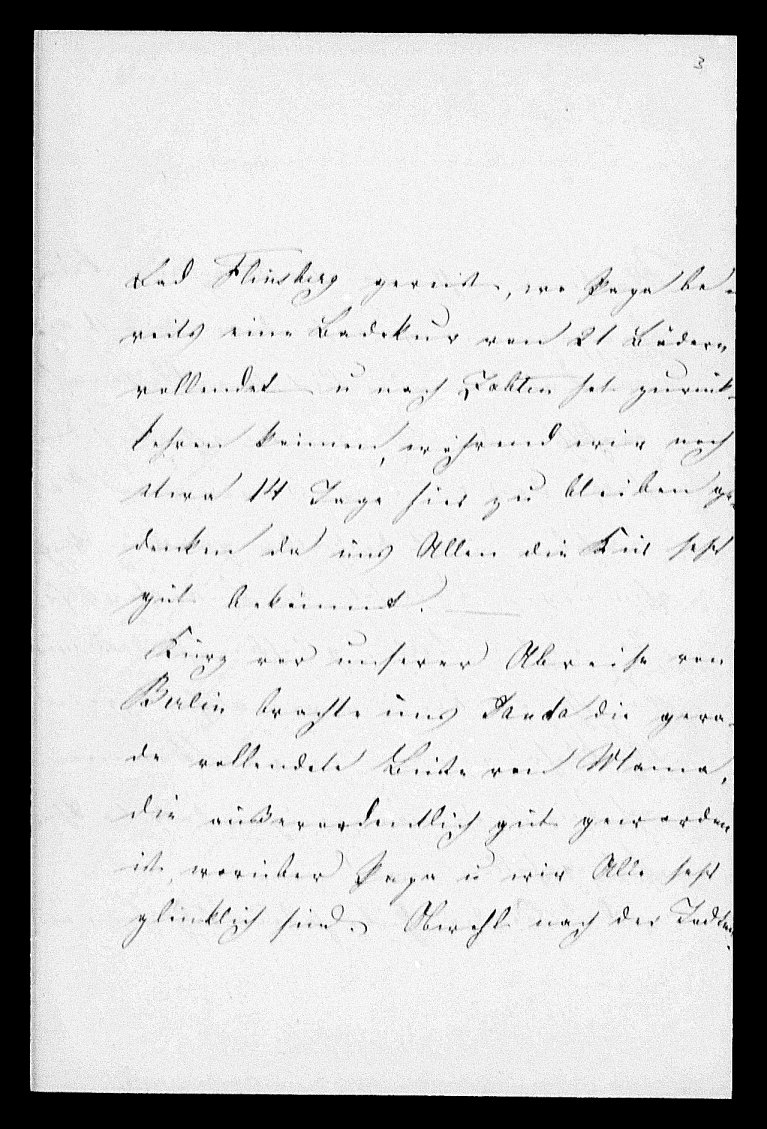 3
Bad Flinsberg gereist, wo Papa be-
reits eine Badekur von 21 Bädern
vollendet u nach Zobten hat zurück-
kehren können, während wir noch
etwa 14 Tage hier zu bleiben ge-
denken da uns Allen die Kur sehr
gut bekommt.
Kurz vor unserer Abreise von
Berlin brachte uns die gera-
de vollendete Büste von Mama,
die außerordentlich gut geworden
ist, worüber Papa u wir Alle sehr
glücklich sind. Obwohl nach der